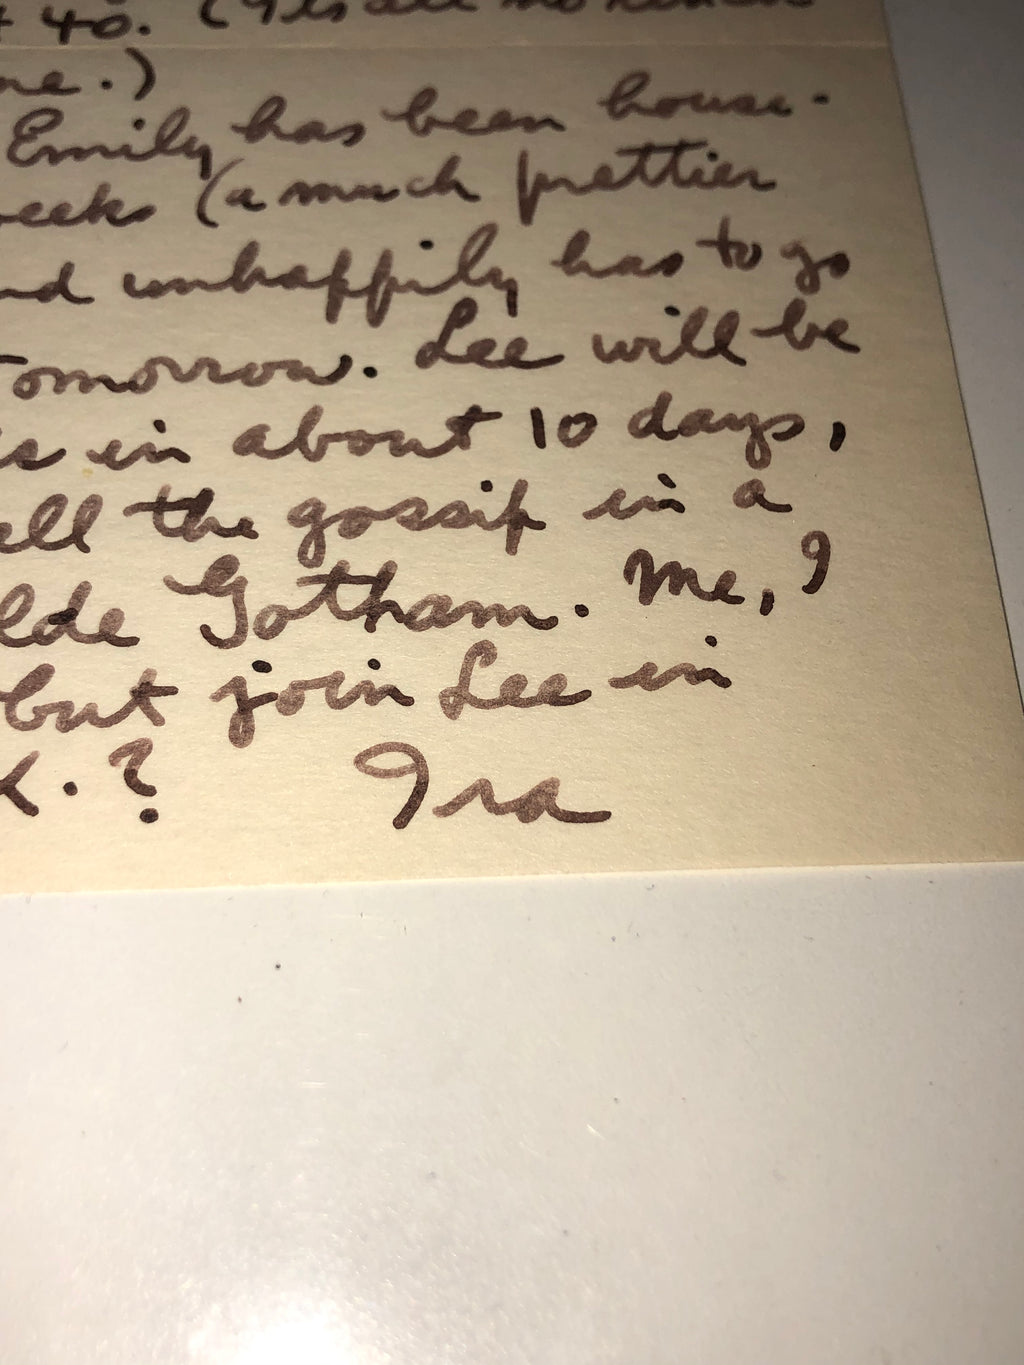 40. (
me.)
Emily has been house-
eeks (a much prettier
nd unhappily has to go
tomorrow. Lee will be
is in about 10 days,
ell the gossip in a
lde Gotham. Me, I
but join Lee in
. ? Ira